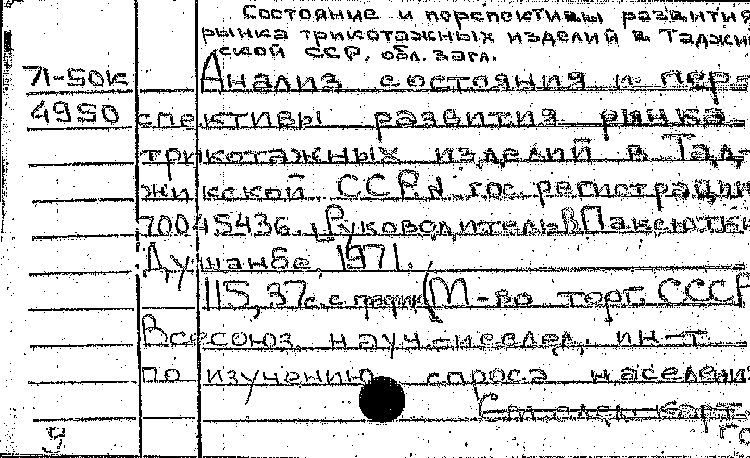 Состояние и перспективы развития
рынка трикотажных изделий в Таджи
ской ССР, обл. загл.
71-50к Анализ состояния и пер-
4950 спективы развития рынка
трикотажных изделий в Тад-
жикской ССР. № гос. регистрации
70045436. Руководитель В.
Душанбе, 1971.
115, 37 с. с график (М-во торг. СССР
Всесоюз. науч.-исслед. ин-т
по изучению спроса населени